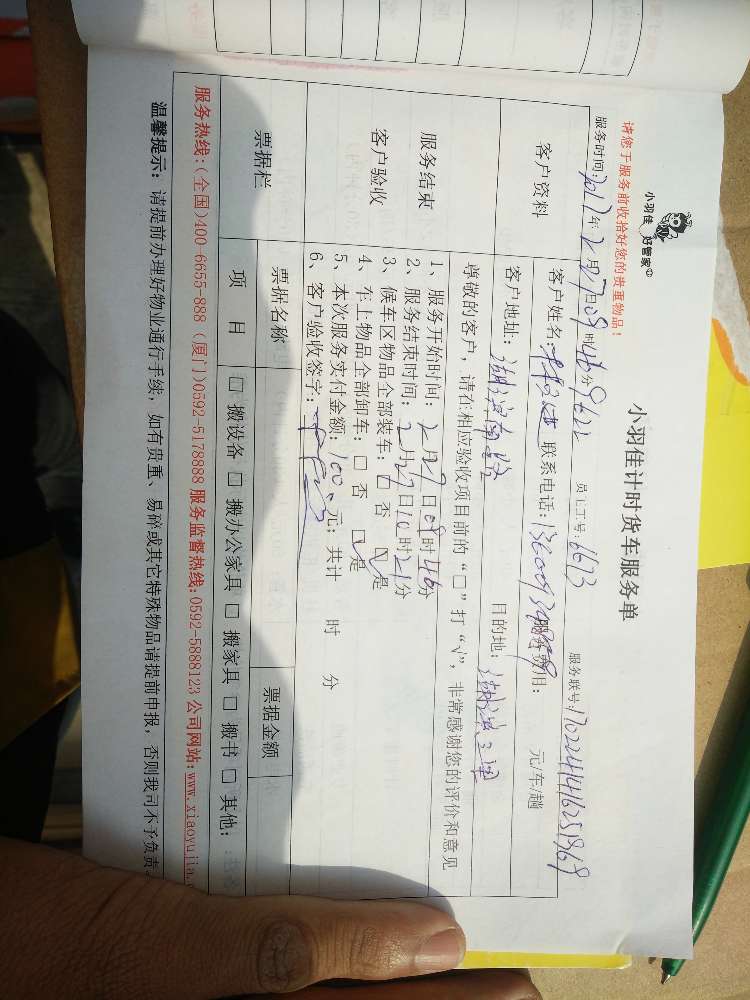 小羽佳 好管家
小羽佳计时货车服务单
请您于服务前收拾好您的贵重物品！
服务时间：2017年2月27日09时46分 9622 员工工号：6613 服务联号：
客户资料
客户姓名： 联系电话： 服务费用： 元/车/趟
客户地址：湖滨南路 目的地：湖滨三里
服务结束
客户验收
尊敬的客户，请在相应验收项目前的“□”打“√”，非常感谢您的评价和意见
1、服务开始时间：2月27日09时46分
2、服务结束时间：2月27日10时21分
3、候车区物品全部装车：□ 否 ☑ 是
4、车上物品全部卸车：□ 否 ☑ 是
5、本次服务实付金额：100.元；共计 时 分
6、客户验收签字：
票据栏
票据名称 票据金额
项 目 □ 搬设备 □ 搬办公家具 □ 搬家具 □ 搬书 □ 其他：
服务热线：(全国)400-6655-888 (厦门)0592-5178888 服务监督热线：0592-5888123 公司网站：www.xiaoyujia.
温馨提示：请提前办理好物业通行手续，如有贵重、易碎或其它特殊物品请提前申报，否则我司不予负责。